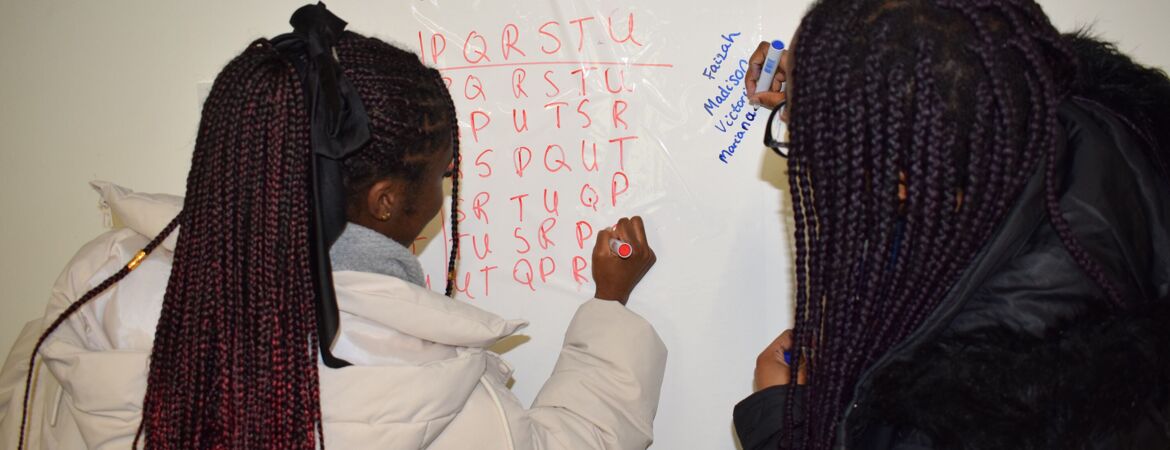 P Q R S T U
P Q R S T U
P U T S R
S P Q U T
S R T U Q P
T U S R P
U T Q P R
Faizah
Madison
Victori
Mariana